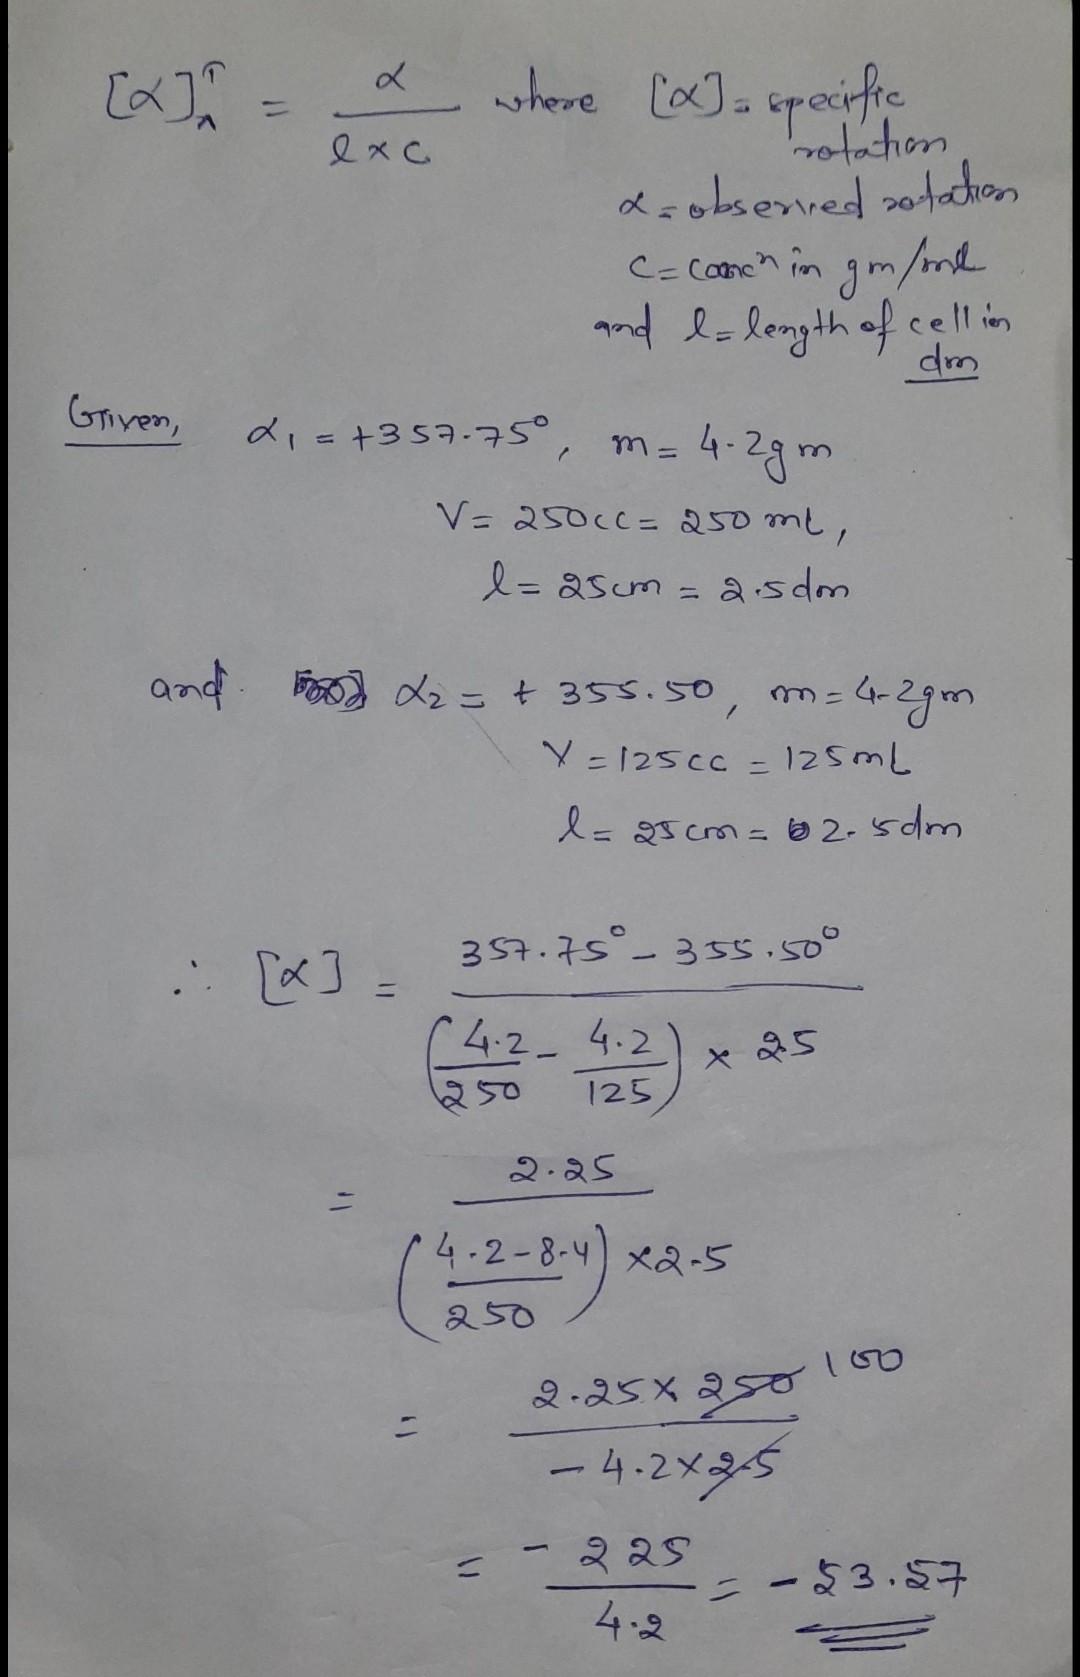 [α]ᵀλ = α / l × c where [α] = specific
rotation
α = observed rotation
C = concⁿ in gm/ml
and l = length of cell in
dm
Given, α₁ = +357.75°, m = 4.2gm
V = 250cc = 250 ml,
l = 25cm = 2.5dm
and α₂ = + 355.50, m = 4.2gm
V = 125cc = 125ml
l = 25cm = 2.5dm
∴ [α] = 357.75° - 355.50° / (4.2/250 - 4.2/125) × 25
= 2.25 / (4.2-8.4/250) ×2.5
= 2.25 × 250 100 / - 4.2×2.5
= - 225 / 4.2 = - 53.57